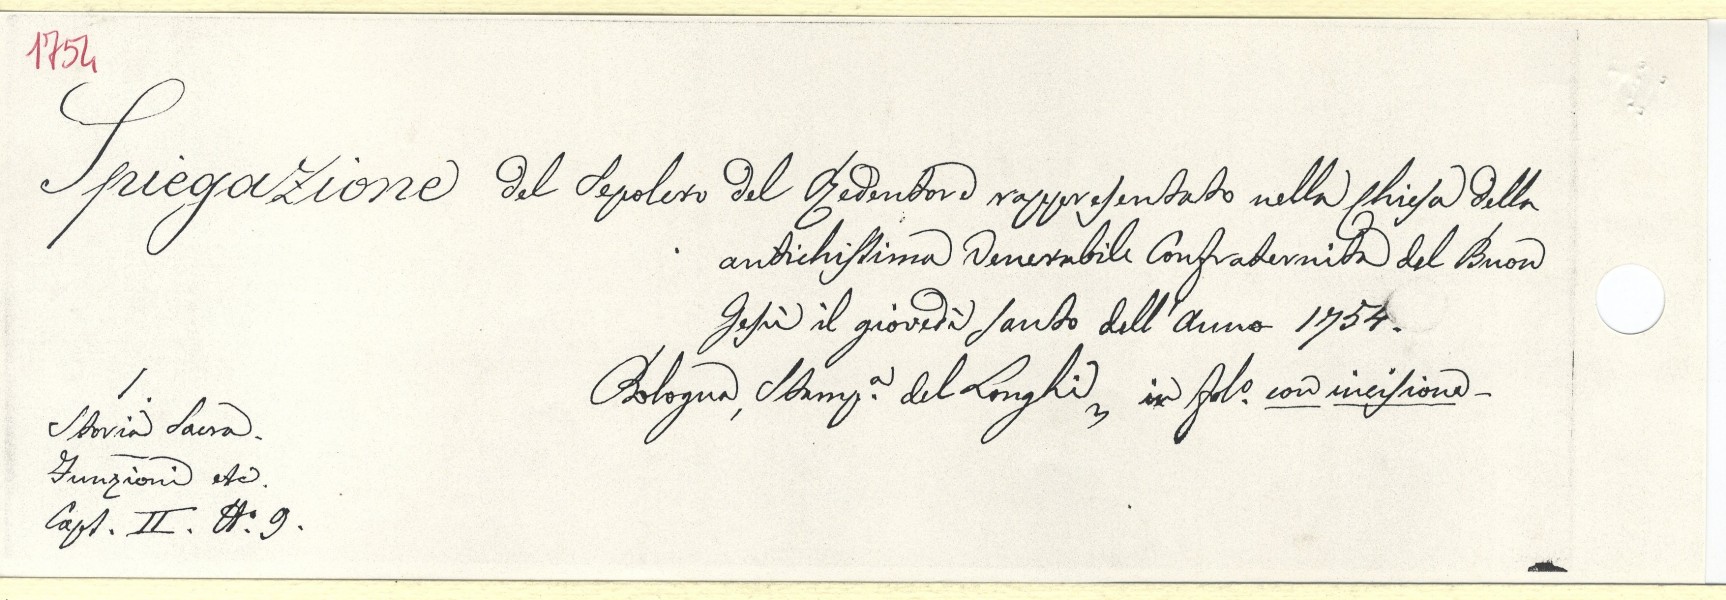 1754
Spiegazione del Sepolcro del Redentore rappresentato nella Chiesa della
antichissima Venerabile Confraternita del Buon
Gesù il giovedì santo dell'Anno 1754.
Bologna, Stamp.ª del Longhi, in fol.º con incisione -
1.
Storia Sacra.
Funzioni etc.
Capt. II. N.º 9.